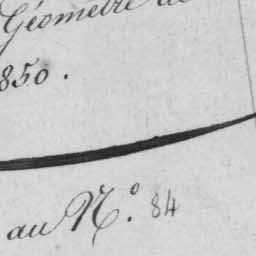 Géometre
850.
au N.° 84